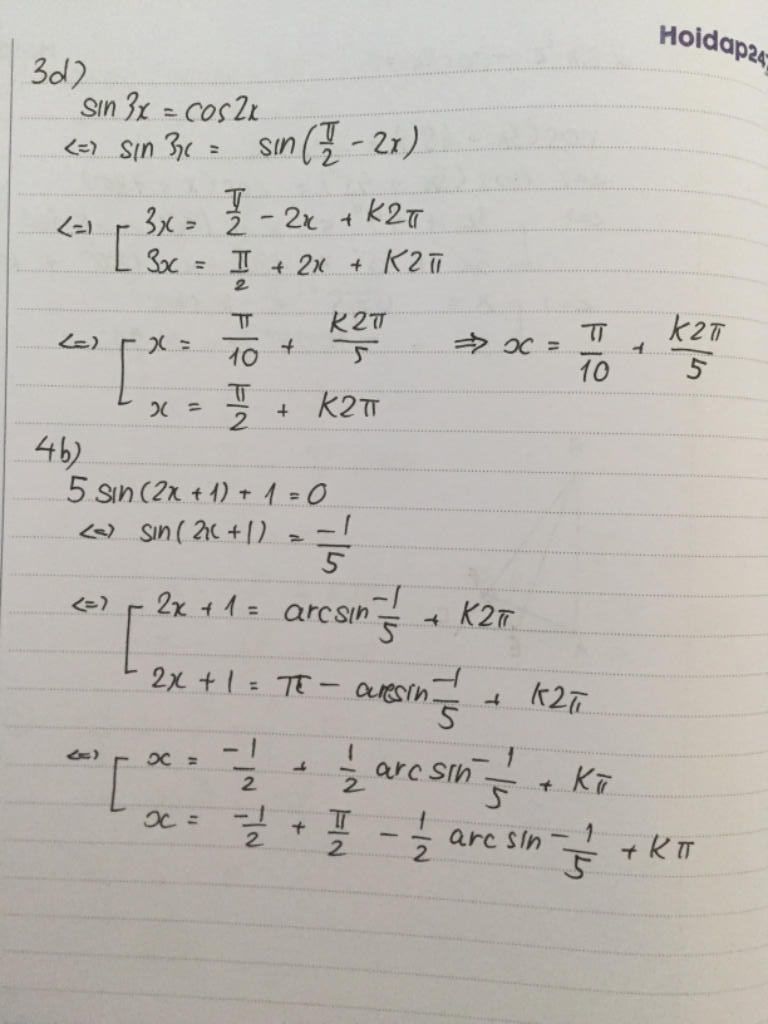 Hoidap247
3d)
sin 3x = cos2x
<=> sin 3x = sin(π/2 - 2x)
<=> [ 3x = π/2 - 2x + K2π
3x = π/2 + 2x + K2π
<=> [ x = π/10 + K2π/5 => x = π/10 + K2π/5
x = π/2 + K2π
4b)
5 sin(2x + 1) + 1 = 0
<=> sin(2x + 1) = -1/5
<=> [ 2x + 1 = arcsin -1/5 + K2π
2x + 1 = π - arcsin -1/5 + K2π
<=> [ x = -1/2 + 1/2 arcsin -1/5 + Kπ
x = -1/2 + π/2 - 1/2 arcsin -1/5 + Kπ